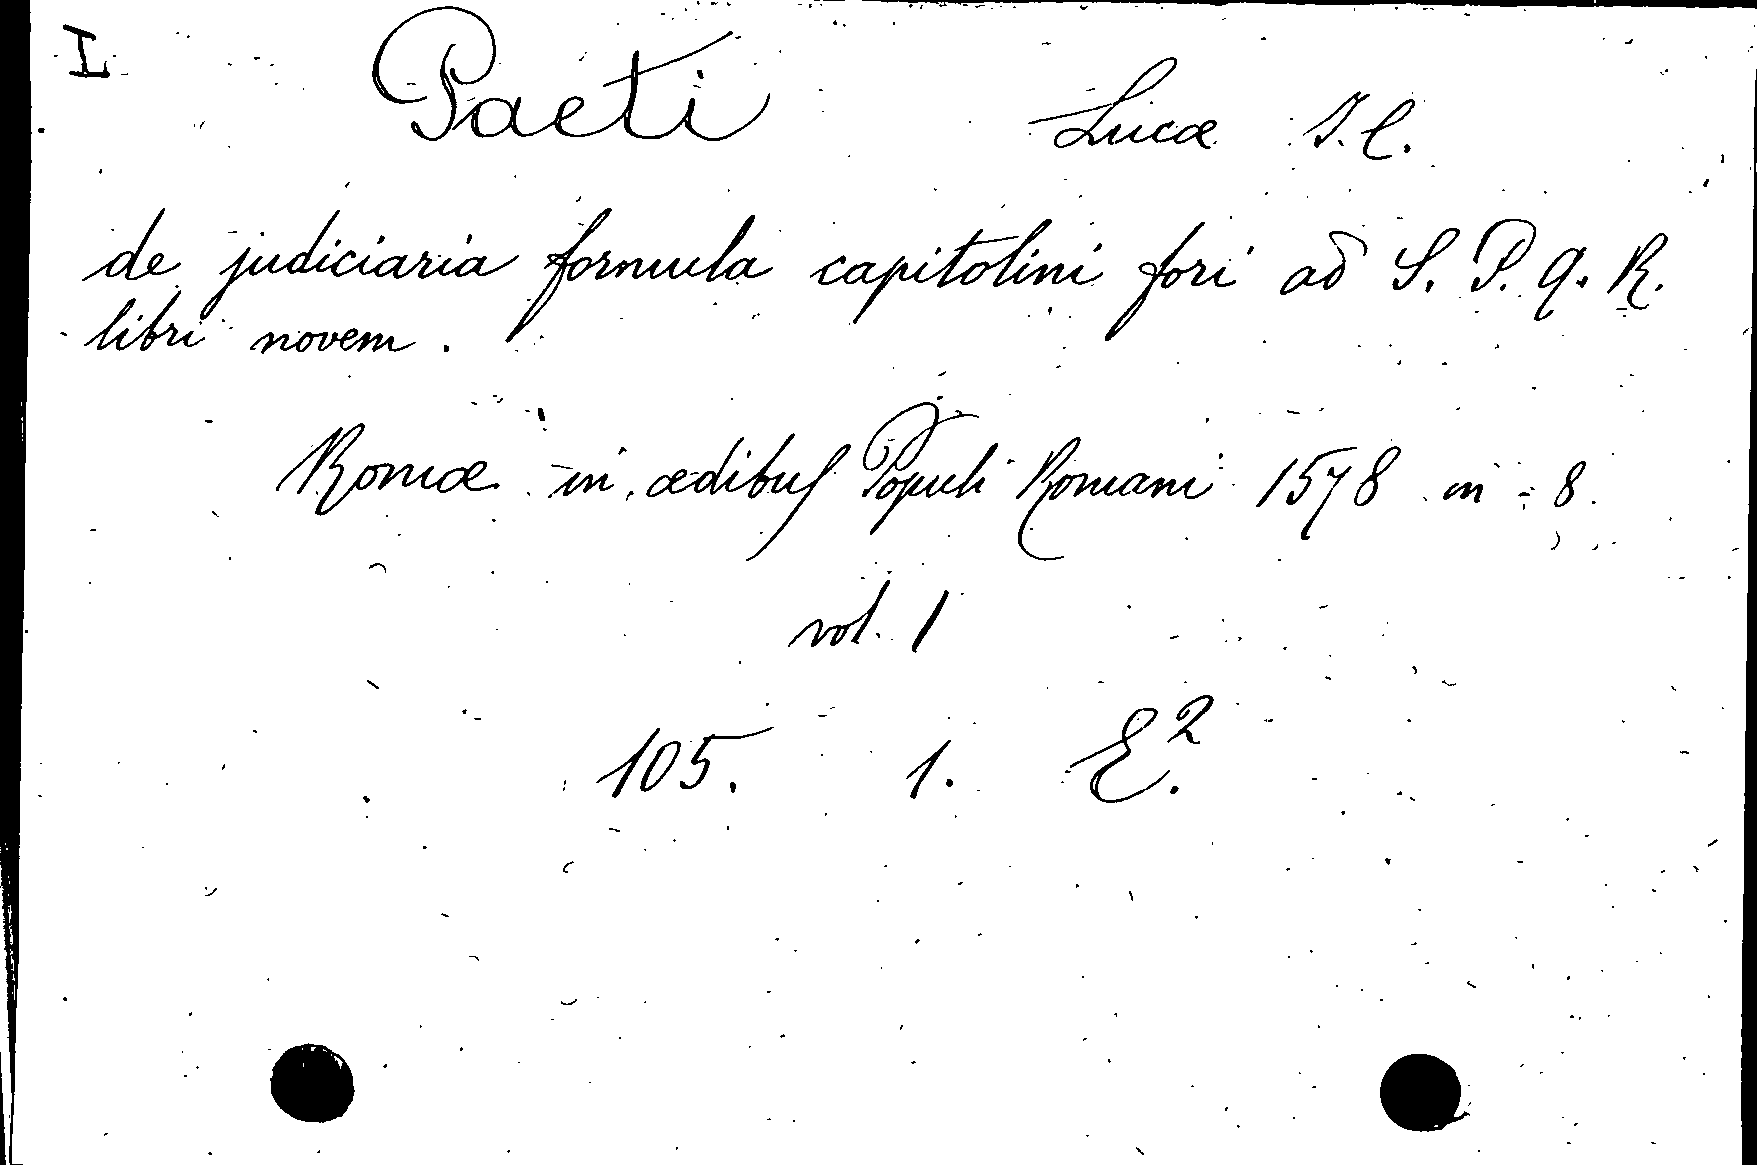 I Paeti Lucæ I. C.
de judiciaria formula capitolini fori ad S. P. Q. R.
libri novem.
Romæ in ædibus Populi Romani 1578 in-8.
vol. 1
105. 1. E².